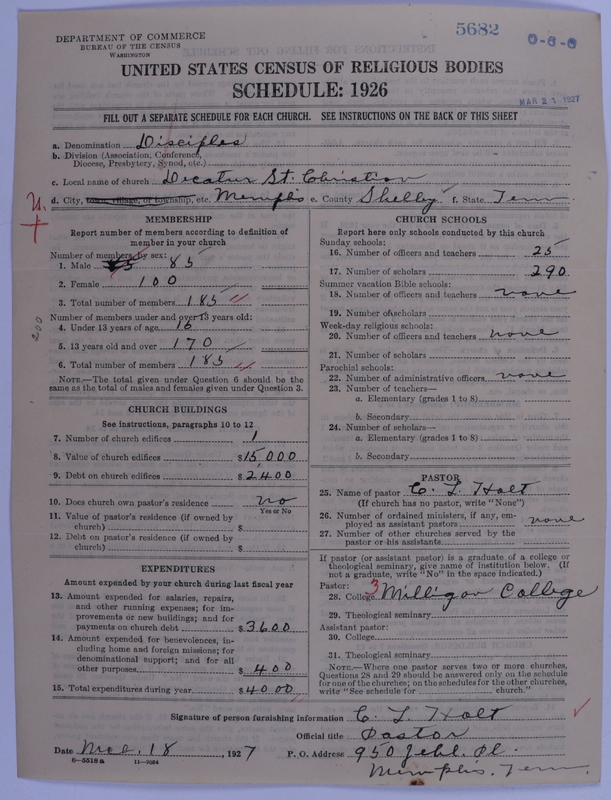 DEPARTMENT OF COMMERCE
BUREAU OF THE CENSUS
WASHINGTON
5682
0-6-0
UNITED STATES CENSUS OF RELIGIOUS BODIES
SCHEDULE: 1926
MAR 21 1927
FILL OUT A SEPARATE SCHEDULE FOR EACH CHURCH. SEE INSTRUCTIONS ON THE BACK OF THIS SHEET
a. Denomination Disciples
b. Division (Association, Conference, Diocese, Presbytery, Synod, etc.)
c. Local name of church Decatur St. Christian
d. City, town, village, or township, etc. Memphis e. County Shelby f. State Tenn
MEMBERSHIP
Report number of members according to definition of member in your church
Number of members by sex:
1. Male 85
2. Female 100
3. Total number of members 185
Number of members under and over 13 years old:
4. Under 13 years of age 16
200
5. 13 years old and over 170
6. Total number of members 185
NOTE.—The total given under Question 6 should be the same as the total of males and females given under Question 3.
CHURCH BUILDINGS
See instructions, paragraphs 10 to 12
7. Number of church edifices 1
8. Value of church edifices $15,000
9. Debt on church edifices $2400
10. Does church own pastor's residence no
Yes or No
11. Value of pastor's residence (if owned by church) $
12. Debt on pastor's residence (if owned by church) $
EXPENDITURES
Amount expended by your church during last fiscal year
13. Amount expended for salaries, repairs, and other running expenses; for improvements or new buildings; and for payments on church debt $3600
14. Amount expended for benevolences, including home and foreign missions; for denominational support; and for all other purposes $400
15. Total expenditures during year $4000
CHURCH SCHOOLS
Report here only schools conducted by this church
Sunday schools:
16. Number of officers and teachers 25
17. Number of scholars 290
Summer vacation Bible schools:
18. Number of officers and teachers none
19. Number of scholars
Week-day religious schools:
20. Number of officers and teachers none
21. Number of scholars
Parochial schools:
22. Number of administrative officers none
23. Number of teachers—
a. Elementary (grades 1 to 8)
b. Secondary
24. Number of scholars—
a. Elementary (grades 1 to 8)
b. Secondary
PASTOR
25. Name of pastor C. L. Holt
(If church has no pastor, write "None")
26. Number of ordained ministers, if any, employed as assistant pastors none
27. Number of other churches served by the pastor or his assistants
If pastor (or assistant pastor) is a graduate of a college or theological seminary, give name of institution below. (If not a graduate, write "No" in the space indicated.)
Pastor:
28. College 3 Milligan College
29. Theological seminary
Assistant pastor:
30. College
31. Theological seminary
NOTE.—Where one pastor serves two or more churches, Questions 28 and 29 should be answered only on the schedule for one of the churches; on the schedules for the other churches, write "See schedule for church."
Signature of person furnishing information C. L. Holt
Official title Pastor
Date 18, 1927 P. O. Address 950 Jehl Pl.
Memphis, Tenn.
6-5518a 11-9064